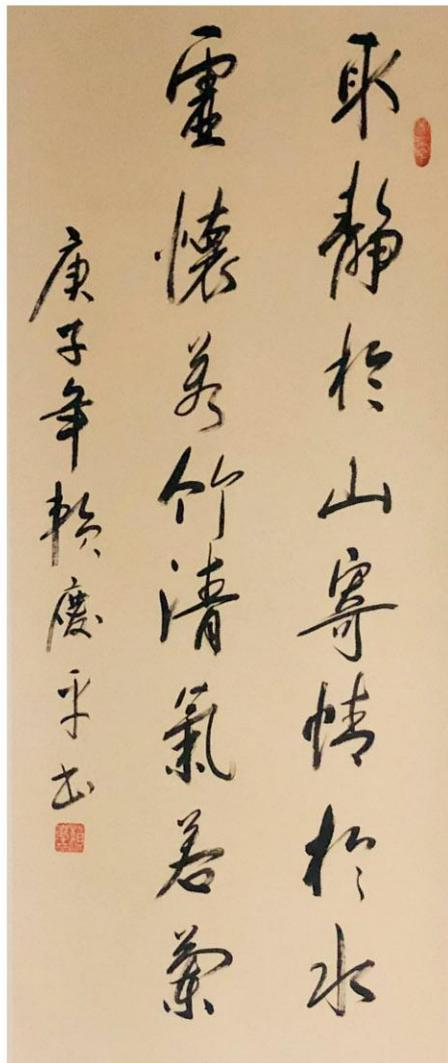 取靜於山寄情於水
虛懷若竹清氣若蘭
庚子年賴慶平书